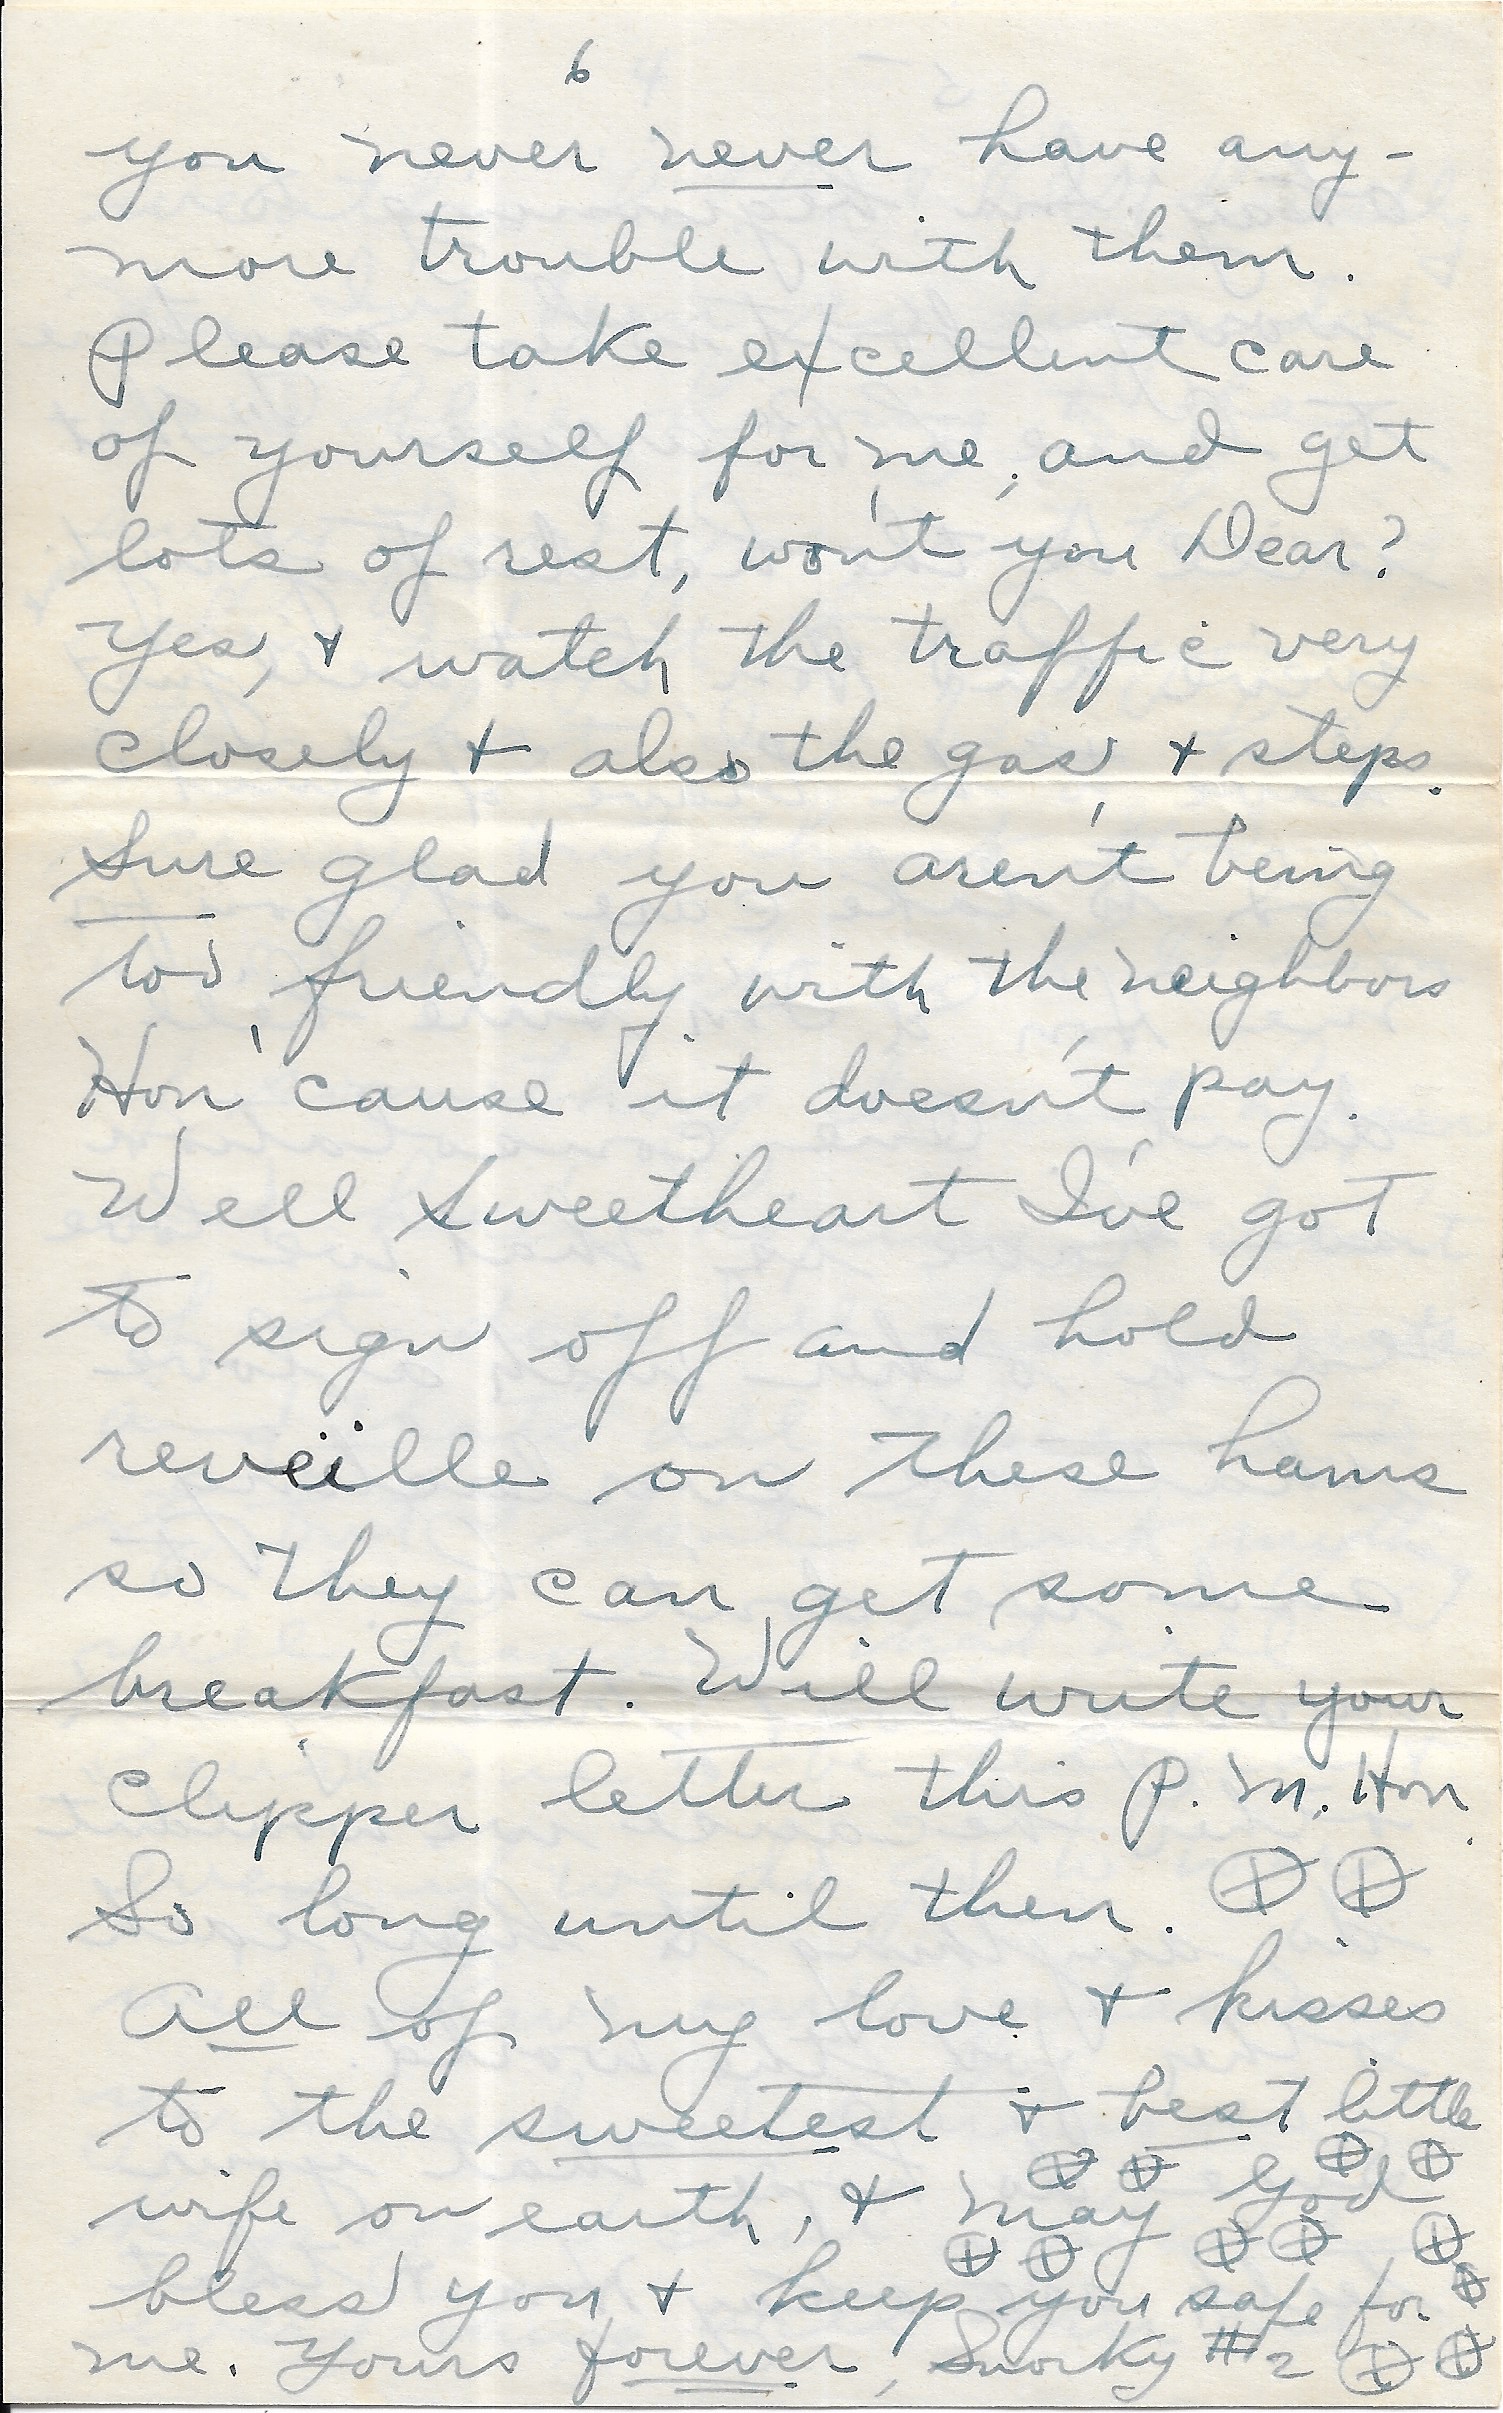 6
you never never have any-
more trouble with them.
Please take excellent care
of yourself for me, and get
lots of rest, won't you Dear?
Yes, + watch the traffic very
closely + also the gas + steps.
Sure glad you aren't being
too friendly with the neighbors
Hon 'cause it doesn't pay.
Well Sweetheart I've got
to sign off and hold
reveille on these hams
so they can get some
breakfast. Will write your
clipper letter this P.M. Hon.
So long until then.
All of my love + kisses
to the sweetest + best little
wife on earth, + may God
bless you + keep you safe for
me. Yours forever, Snorky #2